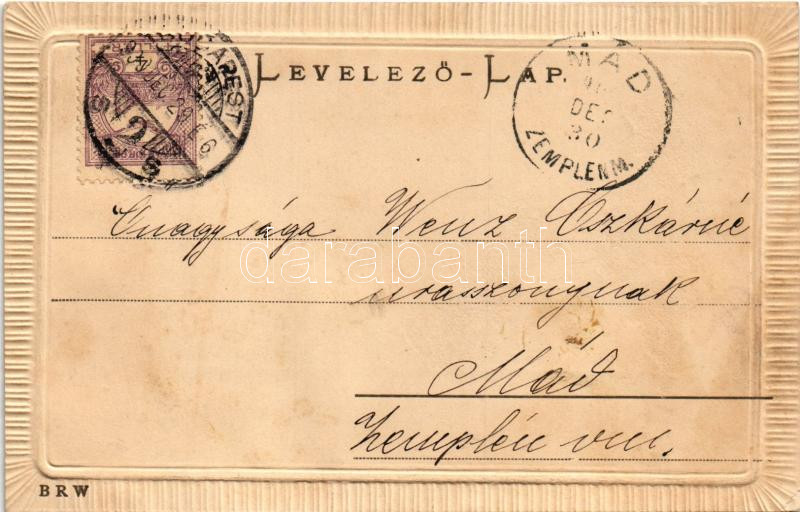 LEVELEZŐ-LAP.
MÁD
DEC
30
ZEMPLÉNM.
Őnagysága Wenz Oszkárné
uraszonynak
Mád
Zemplén vm.
darabanth
BRW